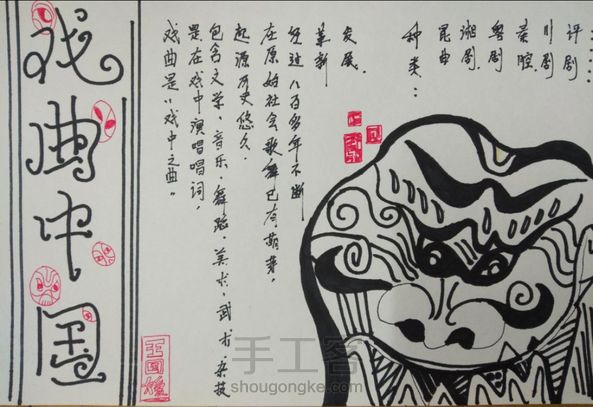 戏曲中国
戏曲是"戏中之曲"
是在戏中演唱唱词,
包含文学,音乐,舞蹈,美术,武术,杂技
起源历史悠久.
在原始社会歌舞已有萌芽.
经过八百多年不断
革新
发展.
种类:
昆曲
湘剧.
粤剧
秦腔.
川剧
评剧
......
手工客
shougongke.com